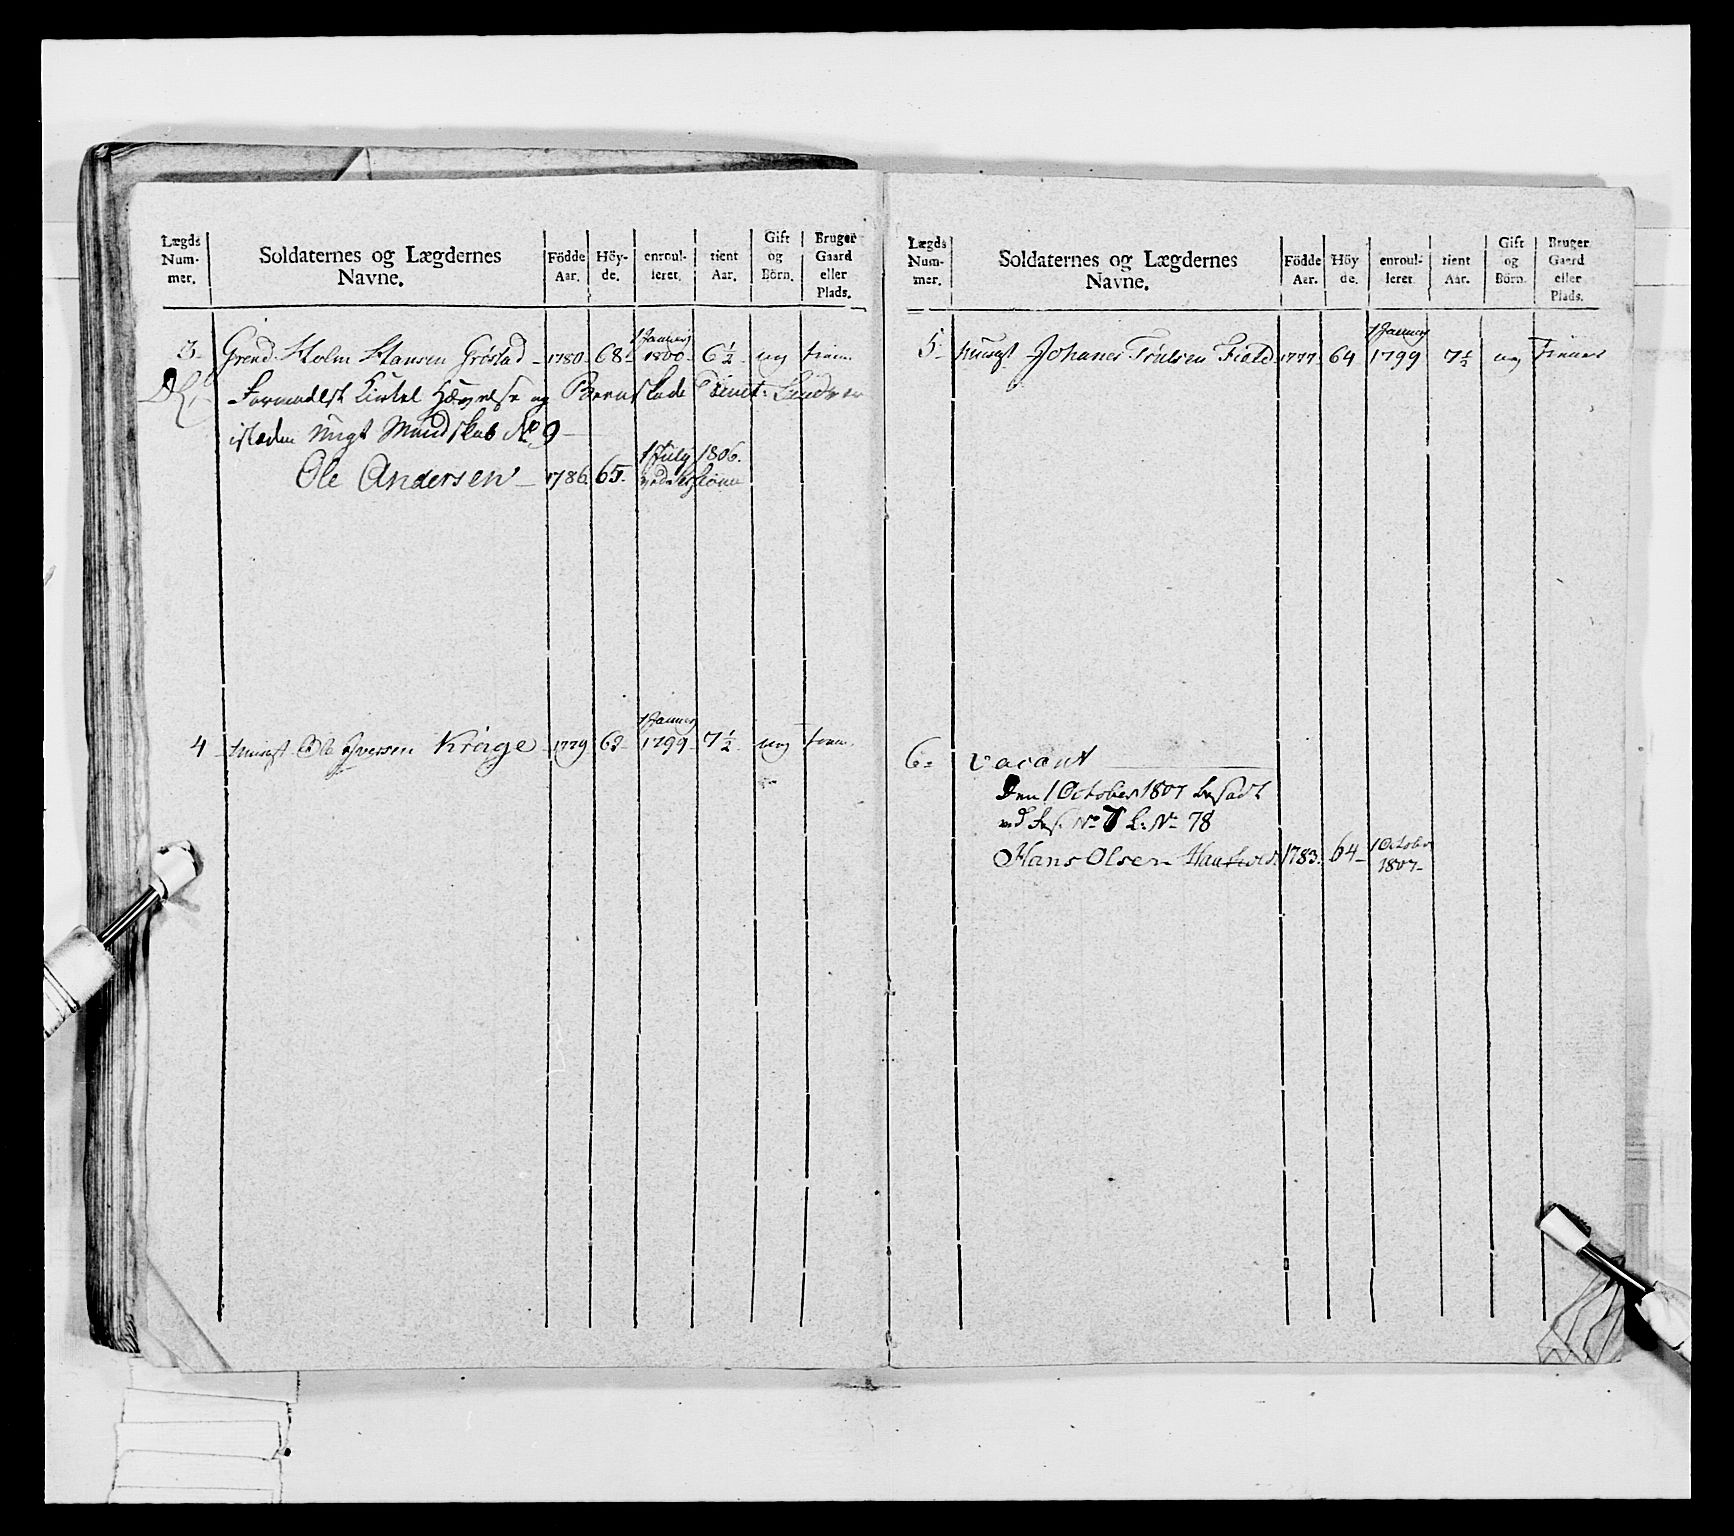 Lægds Num- mer.
Soldaternes og Lægdernes Navne.
Födde Aar.
Höy- de.
enroul- leret.
tient Aar.
Gift og Börn.
Bruger Gaard eller Plads.
3 Grend. Holm Hansen Gröstad 1780 68 1 Januarj 1800 6½ ug tien.
og Beenskade
isteden Mandskab No 9
Ole Andersen 1786. 65. 1 July 1806.
4 Ole Iversen Kroge 1779 1 Januarj 1799 7½ ug tien.
Lægds Num- mer.
Soldaternes og Lægdernes Navne.
Födde Aar.
Höy de.
enroul- leret.
tient Aar.
Gift og Börn.
Bruger Gaard eller Plads.
5 Johanes Troelsen Field 1777 64 1 Januarj 1799 7½ ug tiener
6 vacant
Den 1 October 1807 besadt
ved No 7 L: No 78
Hans Olsen 1783. 64 1 October 1807